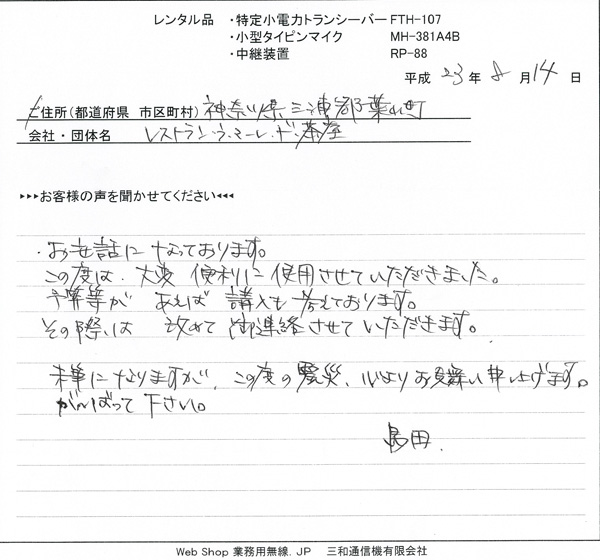 レンタル品 ・特定小電力トランシーバー FTH-107
・小型タイピンマイク MH-381A4B
・中継装置 RP-88
平成 23 年 8 月 14 日
ご住所(都道府県 市区町村) 神奈川県三浦郡葉山町
会社・団体名 レストラン ラ・マーレ・ド・茶屋
▸▸▸お客様の声を聞かせてください◂◂◂
・お世話になっております。
この度は、大変便利に使用させていただきました。
予算等があえば購入も考えております。
その際は改めて御連絡させていただきます。
末筆になりますが、この度の震災、心よりお見舞い申し上げます。
がんばって下さい。
島田.
Web Shop 業務用無線.JP 三和通信機有限会社